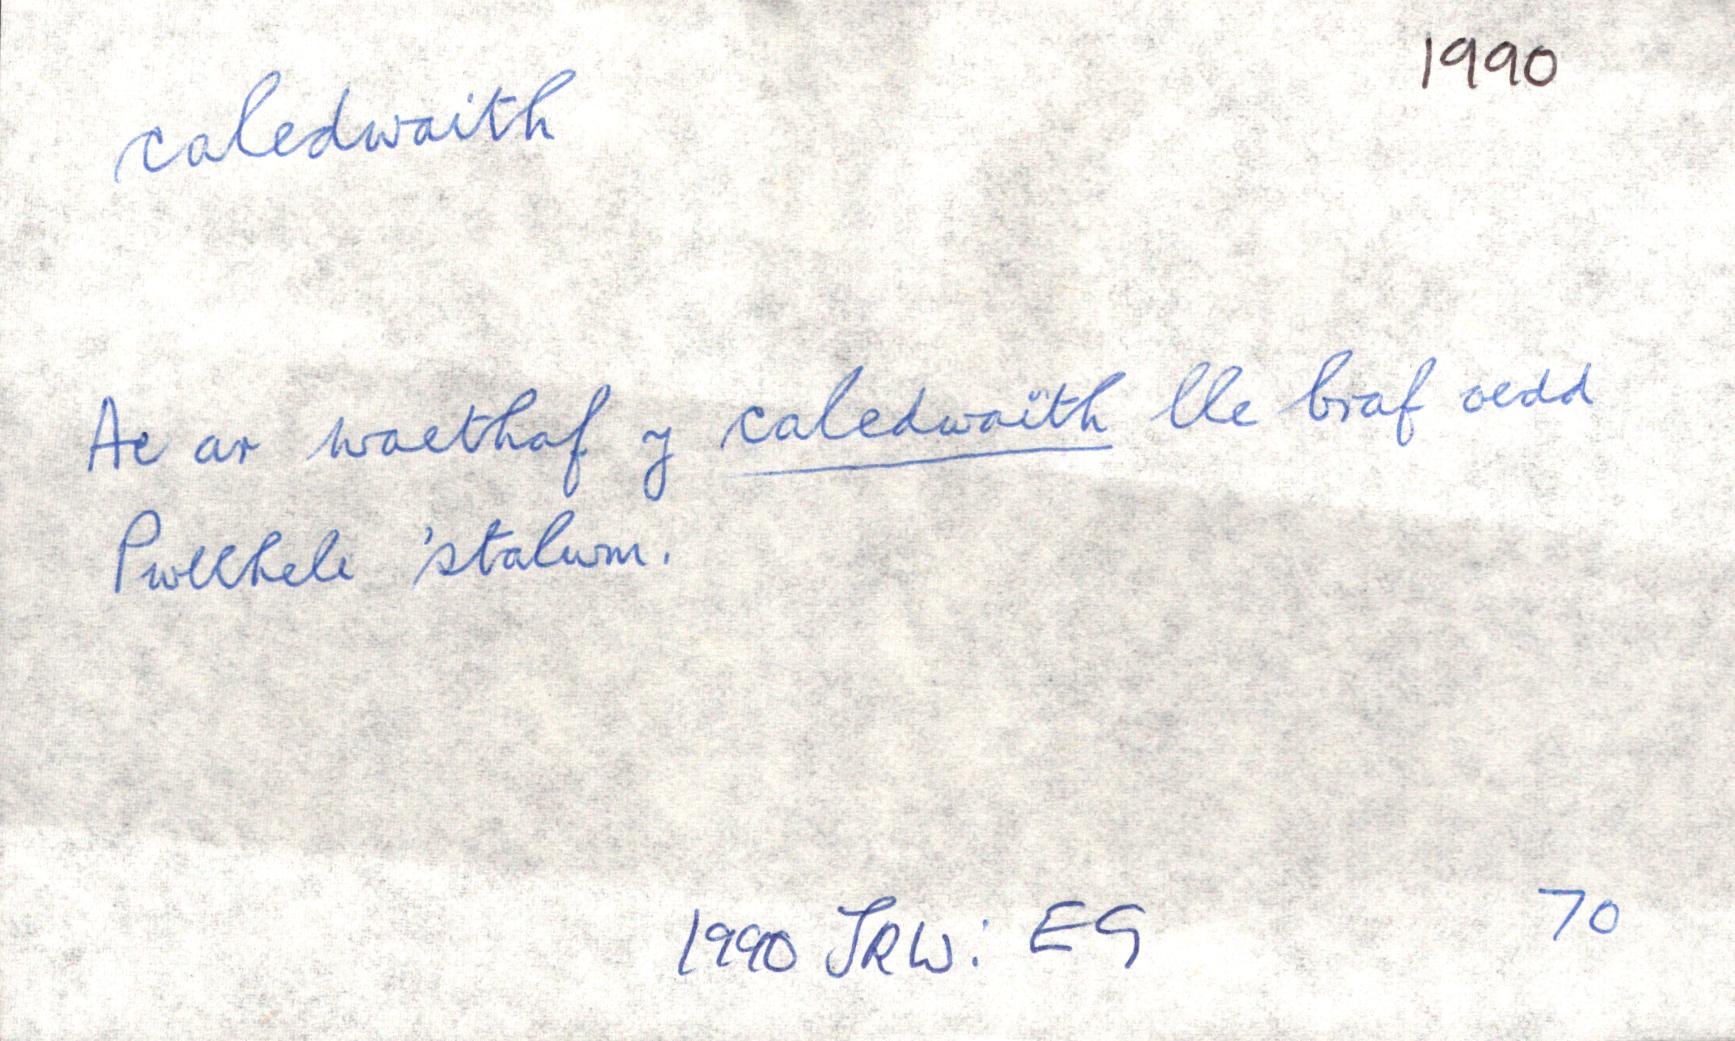 1990
caledwaith
Ac ar waethaf y caledwaïth lle braf oedd
Pwllheli 'stalwm.
1990 JRW: EG
70